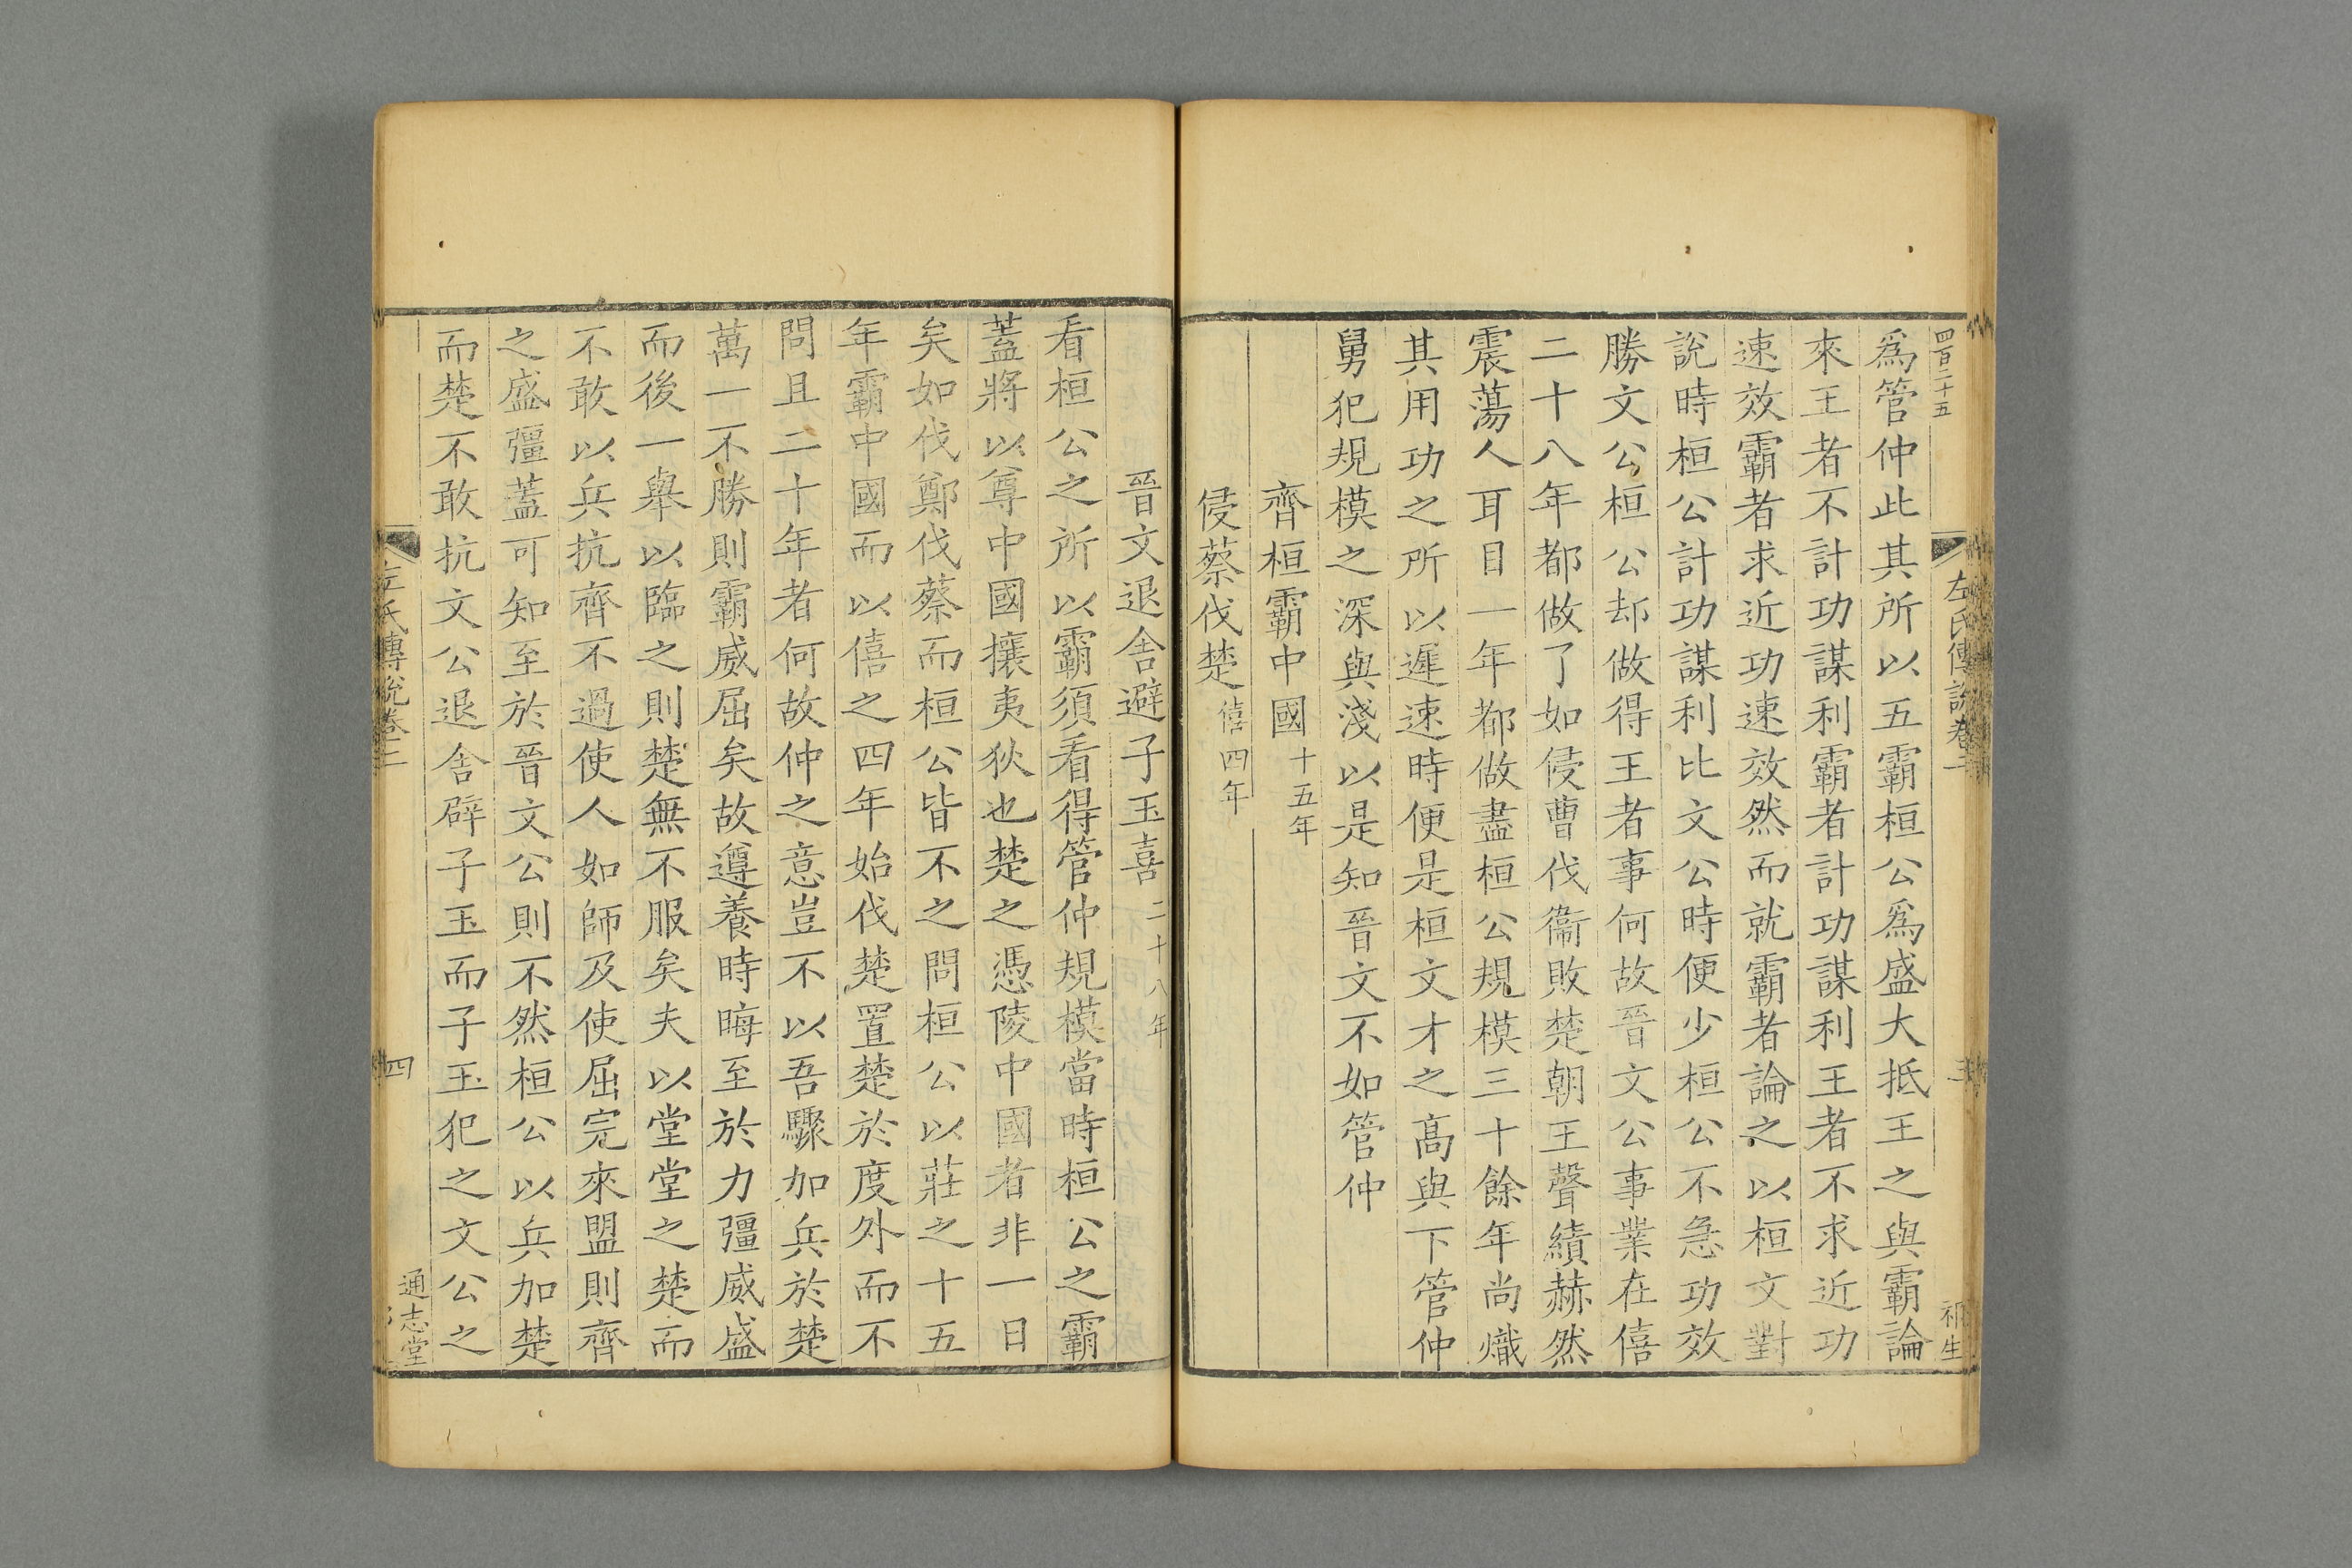 四百二十五
左氏傳說卷二
三
祁生
爲管仲此其所以五霸桓公爲盛大抵王之與霸論
來王者不計功謀利霸者計功謀利王者不求近功
速效霸者求近功速效然而就霸者論之以桓文對
說時桓公計功謀利比文公時便少桓公不急功效
勝文公桓公却做得王者事何故晉文公事業在僖
二十八年都做了如侵曹伐衞敗楚朝王聲績赫然
震蕩人耳目一年都做盡桓公規模三十餘年尚熾
其用功之所以遲速時便是桓文才之高與下管仲
舅犯規模之深與淺以是知晉文不如管仲
齊桓霸中國十五年
侵蔡伐楚僖四年
晉文退舍避子玉喜二十八年
看桓公之所以霸須看得管仲規模當時桓公之霸
蓋將以尊中國攘夷狄也楚之憑陵中國者非一日
矣如伐鄭伐蔡而桓公皆不之問桓公以莊之十五
年霸中國而以僖之四年始伐楚置楚於度外而不
問且二十年者何故仲之意豈不以吾驟加兵於楚
萬一不勝則霸威屈矣故遵養時晦至於力彊威盛
而後一舉以臨之則楚無不服矣夫以堂堂之楚而
不敢以兵抗齊不過使人如師及使屈完來盟則齊
之盛彊蓋可知至於晉文公則不然桓公以兵加楚
而楚不敢抗文公退舍辟子玉而子玉犯之文公之
左氏傳說卷二
四
通志堂